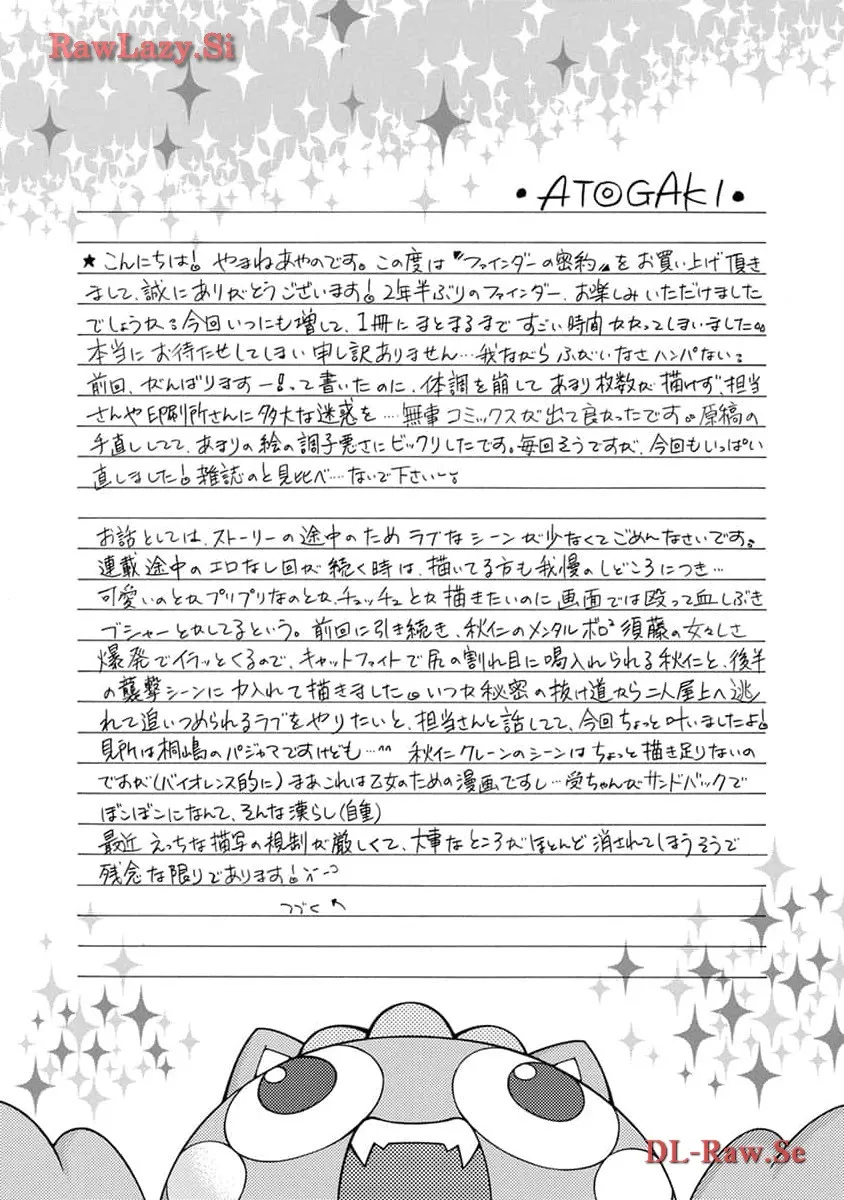 RawLazy.Si
・ATOGAKI・
★こんにちは! やまねあやのです。この度は〝ファインダーの密約〟をお買い上げ頂き
まして、誠にありがとうございます!2年半ぶりのファインダー、お楽しみいただけました
でしょうか?今回いつにも増して、1冊にまとまるまですごい時間かかってしまいました。。
本当にお待たせしてしまい申し訳ありません…我ながらふがいなさハンパない。
前回、がんばりますー!って書いたのに、体調を崩してあまり枚数が描けず、担当
さんや印刷所さんに多大な迷惑を…無事コミックスが出て良かったです。原稿の
手直ししてて、あまりの絵の調子悪さにビックリしたです。毎回そうですが、今回もいっぱい
直しました!雑誌のと見比べ…ないで下さい〜。
お話としては、ストーリーの途中のためラブなシーンが少なくてごめんなさいです。
連載途中のエロなし回が続く時は、描いてる方も我慢のしどころにつき…
可愛いのとかプリプリなのとか、チュッチュとか描きたいのに画面では殴って血しぶき
ブシャーとかしてるという。前回に引き続き、秋仁のメンタルボロ²須藤の女々しさ
爆発でイラッとくるので、キャットファイトで尻の割れ目に喝入れられる秋仁と、後半
の襲撃シーンに力入れて描きました。いつか秘密の抜け道から二人屋上へ逃
れて追いつめられるラブをやりたいと、担当さんと話してて、今回ちょっと叶いましたよ!
見所は桐嶋のパジャマですけども…^^ 秋仁クレーンのシーンはちょっと描き足りないの
ですが(バイオレンス的に)まあこれは乙女のための漫画ですし…受ちゃんがサンドバックで
ぼこぼこになんて、そんな漢らし(自重)
最近えっちな描写の規制が厳しくて、大事なところがほとんど消されてしまうそうで
残念な限りであります!
つづく
DL-Raw.Se